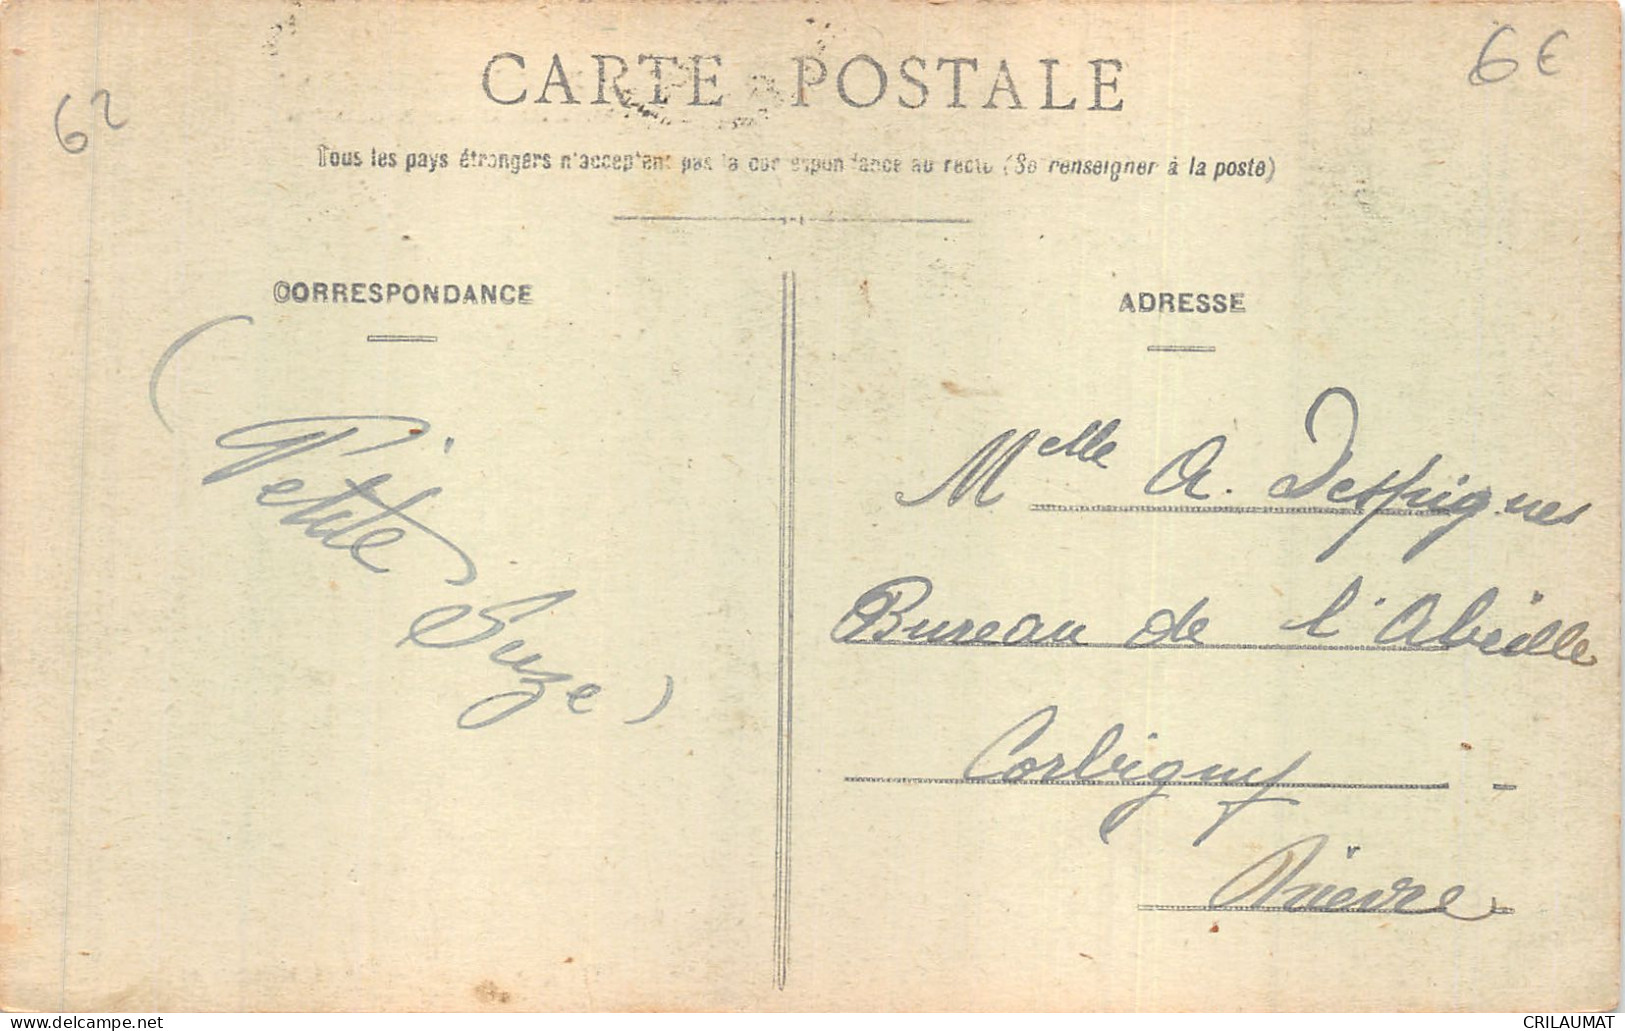 62
6€
CARTE POSTALE
Tous les pays étrangers n'acceptent pas la correspondance au recto (Se renseigner à la poste)
CORRESPONDANCE
(Petite
Suze)
ADRESSE
Melle A. Despignes
Bureau de l'Abeille
Corbigny
Nièvre
delcampe.net
CRILAUMAT